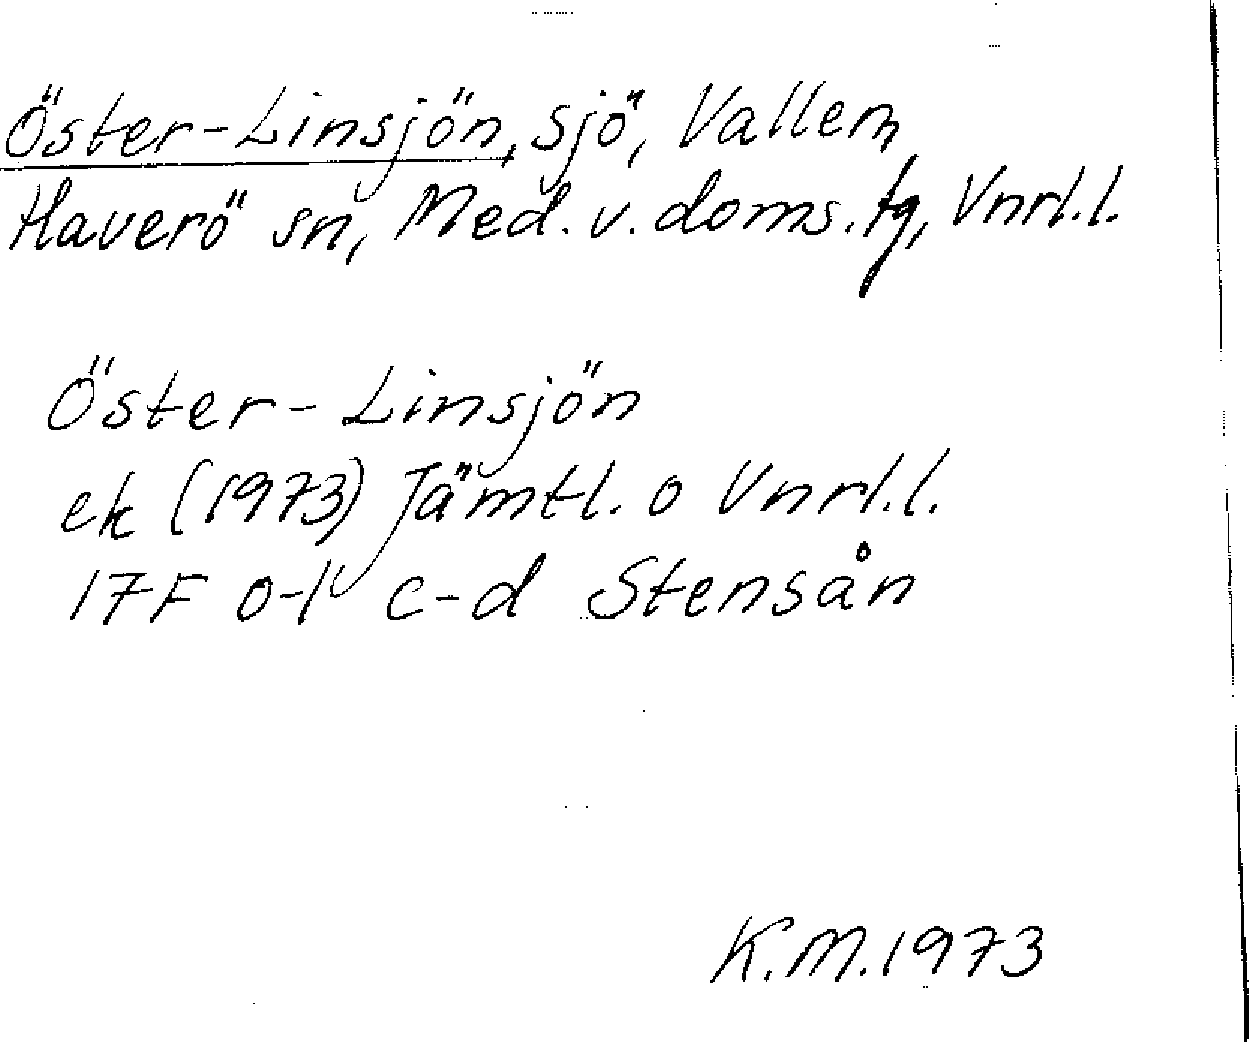 Öster-Linsjön, sjö, Vallen,
Haverö sn, Med. v. doms. tg, Vnrl.l.
Öster-Linsjön
ek (1973) Jämtl. o Vnrl.l.
17F 0-1 c-d Stensån
K.M. 1973